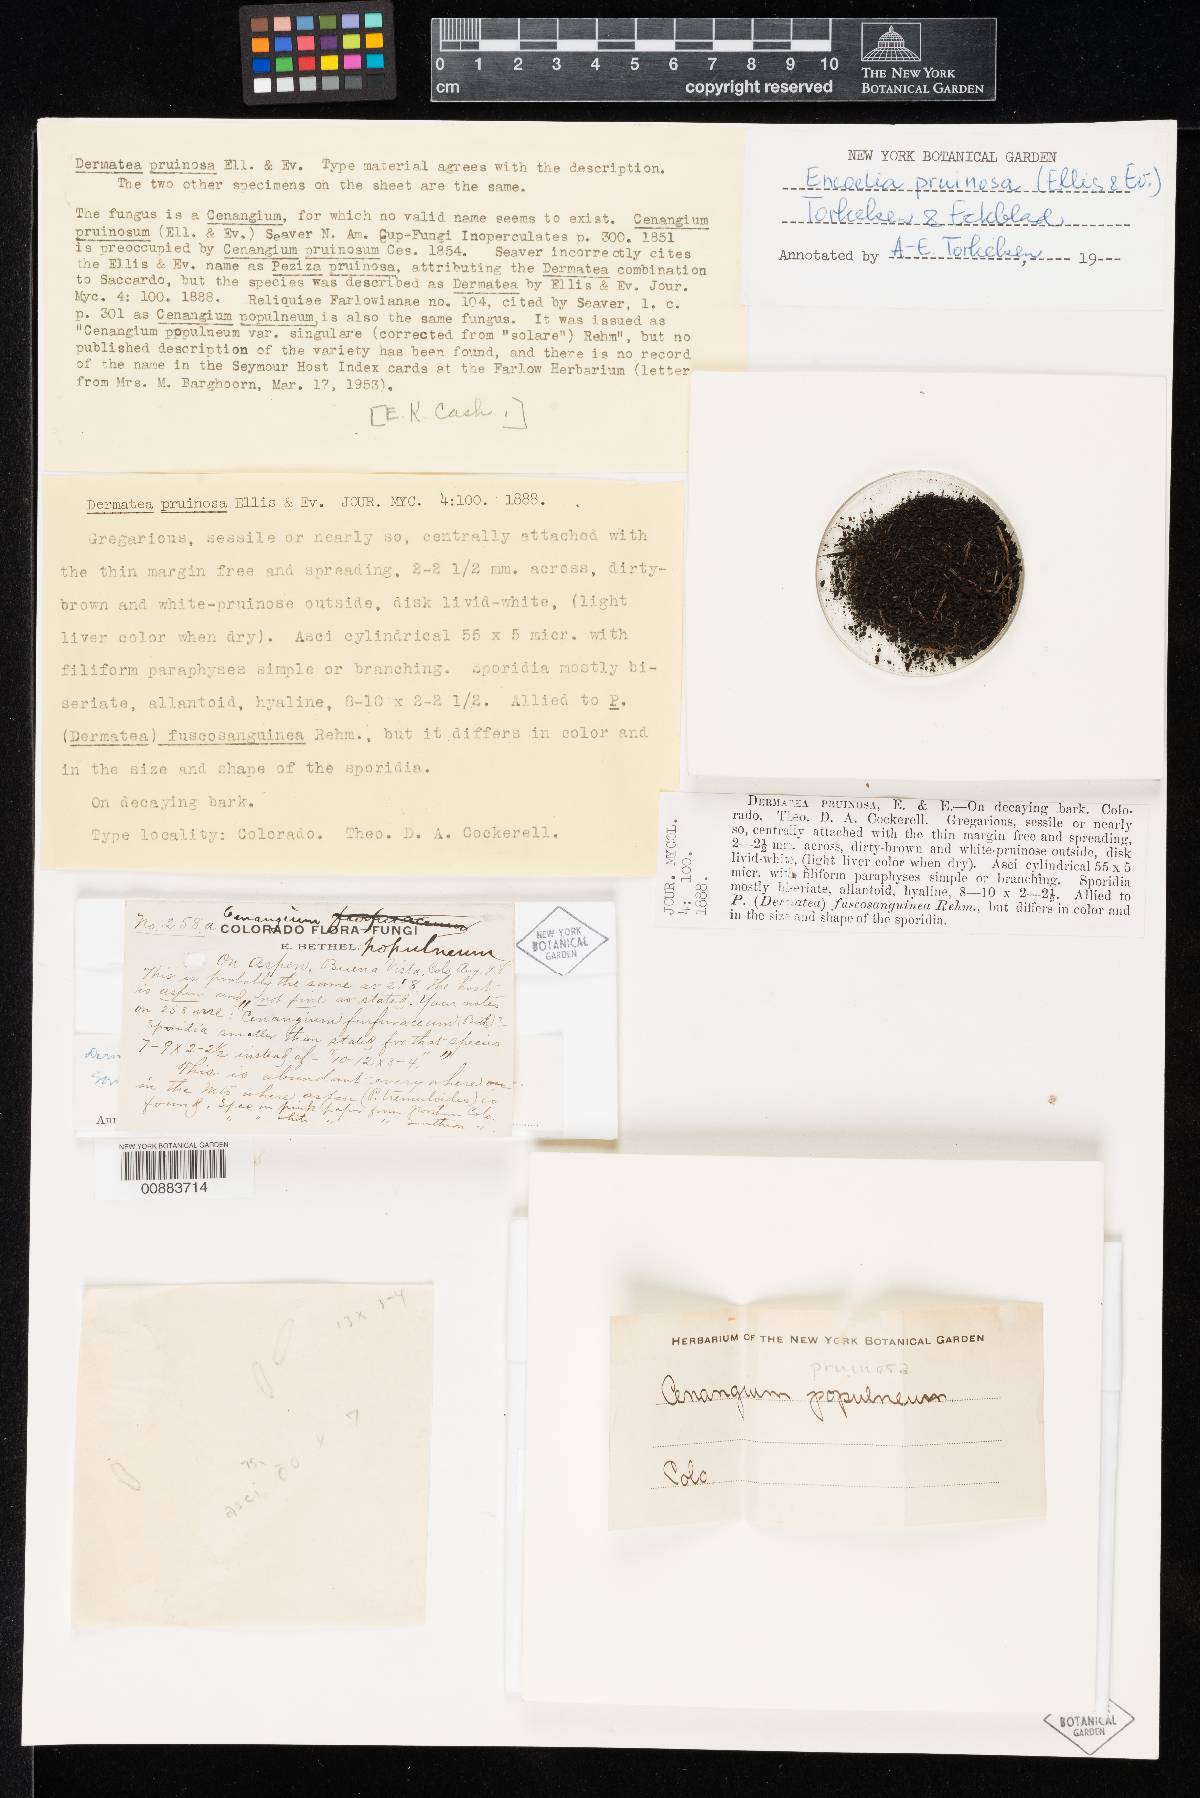 0 1 2 3 4 5 6 7 8 9 10
cm
copyright reserved
THE NEW YORK
BOTANICAL GARDEN
Dermatea pruinosa Ell. & Ev. Type material agrees with the description.
The two other specimens on the sheet are the same.
The fungus is a Cenangium, for which no valid name seems to exist. Cenangium
pruinosum (Ell. & Ev.) Seaver N. Am. Cup-Fungi Inoperculates p. 300. 1851
is preoccupied by Cenangium pruinosum Ces. 1854. Seaver incorrectly cites
the Ellis & Ev. name as Peziza pruinosa, attributing the Dermatea combination
to Saccardo, but the species was described as Dermatea by Ellis & Ev. Jour.
Myc. 4: 100. 1888. Reliquiae Farlowianae no. 104, cited by Seaver, l. c.
p. 301 as Cenangium populneum, is also the same fungus. It was issued as
"Cenangium populneum var. singulare (corrected from "solare") Rehm", but no
published description of the variety has been found, and there is no record
of the name in the Seymour Host Index cards at the Farlow Herbarium (letter
from Mrs. M. Barghoorn, Mar. 17, 1953).
[E. K. Cash.]
NEW YORK BOTANICAL GARDEN
Encoelia pruinosa (Ellis & Ev.)
Torkelsen & Eckblad
Annotated by A-E. Torkelsen, 19
Dermatea pruinosa Ellis & Ev. JOUR. MYC. 4:100. 1888.
Gregarious, sessile or nearly so, centrally attached with
the thin margin free and spreading, 2-2 1/2 mm. across, dirty-
brown and white-pruinose outside, disk livid-white, (light
liver color when dry). Asci cylindrical 55 x 5 micr. with
filiform paraphyses simple or branching. Sporidia mostly bi-
seriate, allantoid, hyaline, 8-10 x 2-2 1/2. Allied to P.
(Dermatea) fuscosanguinea Rehm., but it differs in color and
in the size and shape of the sporidia.
On decaying bark.
Type locality: Colorado. Theo. D. A. Cockerell.
JOUR. MYCOL.
4: 100.
1888.
DERMATEA PRUINOSA, E. & E.—On decaying bark. Colo-
rado. Theo. D. A. Cockerell. Gregarious, sessile or nearly
so, centrally attached with the thin margin free and spreading,
2—2½ mm. across, dirty-brown and white-pruinose outside, disk
livid-white, (light liver color when dry). Asci cylindrical 55 x 5
micr. with filiform paraphyses simple or branching. Sporidia
mostly biseriate, allantoid, hyaline, 8—10 x 2—2½. Allied to
P. (Dermatea) fuscosanguinea Rehm., but differs in color and
in the size and shape of the sporidia.
No. 258a Cenangium furfuraceum
COLORADO FLORA-FUNGI
E. BETHEL. populneum
On Aspen, Buena Vista, Colo, Aug. 98
This is probably the same as 258 The host
is aspen and not pine as stated. Your notes
on 258 were: "Cenangium furfuraceum (Roth)?
Sporidia smaller than stated for that species
7-9 x 2-2½ instead of - "10-12 x 3-4."
This is abundant everywhere
in the Mts where aspen (P. tremuloides) is
found. Spec on pink paper from northern Colo.
" " white " " southern "
NEW YORK
BOTANICAL
GARDEN
NEW YORK BOTANICAL GARDEN
00883714
13 x 3-4
Asci
HERBARIUM OF THE NEW YORK BOTANICAL GARDEN
pruinosa
Cenangium populneum
Colo
BOTANICAL
GARDEN